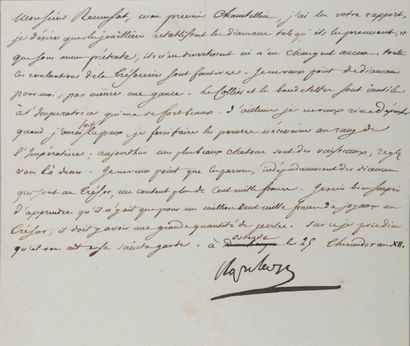 Monsieur Remusat, mon premier Chambellan, j'ai lu votre rapport,
je désire que les joailliers rétablissent les diamans tels qu'ils les prennent, et
que sous aucun prétexte, ils n'en divertissent ni n'en changent aucun. toutes
ces évaluations de la trésorerie sont fautives. Je ne veux point de diamans
pour moi, pas même une ganse. Le Collier et les boucles sont inutiles
à l'Impératrice qui en a de fort beaux. D'ailleurs je ne veux rien dépenser
quand j'aurai fait la paix je pourrai le permettre nécessaire au rang de
l'Impératrice; aujourd'hui mes plus beaux chatons sont des vaisseaux, réglez
vous là dessus. Je ne veux point que la parure, indépendamment des diamans
qui sont au Trésor, me coutent plus de cent mille francs. Je suis
d'apprendre qu'il n'y ait que pour un million huit mille francs de joyaux au
trésor; il doit y avoir une grande quantité de perles. Sur ce je prie dieu
qu'il vous ait en sa sainte garde. à ostende le 25 Thermidor an XII.
Napoleon